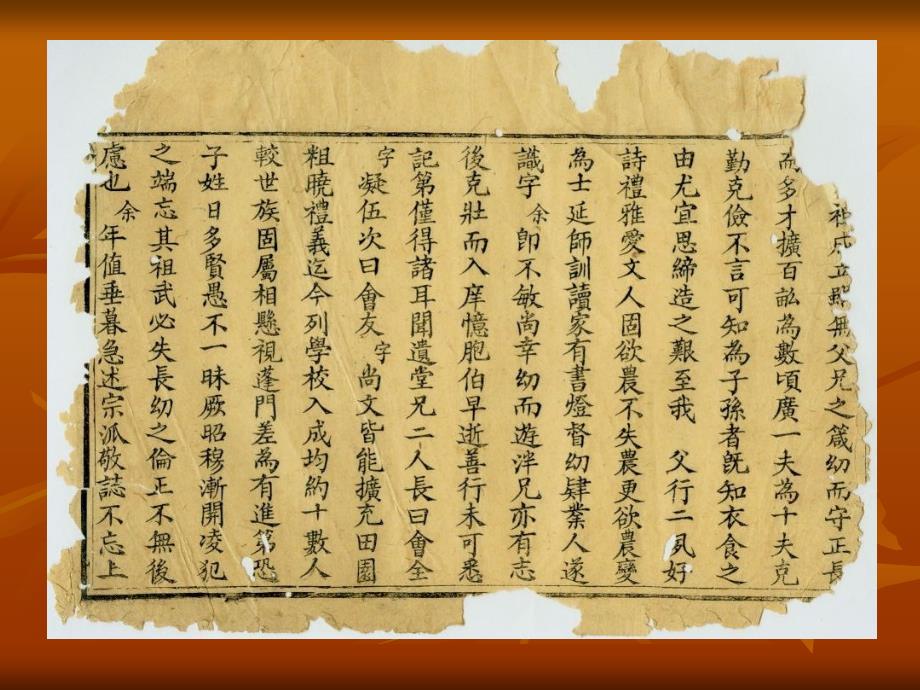 無父兄之箴幼而守正長
而多才擴百畝為數頃廣一夫為十夫克
勤克儉不言可知為子孫者旣知衣食之
由尤宜思締造之艱至我 父行二夙好
詩禮雅愛文人固欲農不失農更欲農變
為士延師訓讀家有書燈督幼肄業人遂
識字 余卽不敏尚幸幼而遊泮兄亦有志
後克壯而入庠憶胞伯早逝善行未可悉
記第僅得諸耳聞遺堂兄二人長曰會全
字凝伍次曰會友 字尚文皆能擴充田園
粗曉禮義迄今列學校入成均約十數人
較世族固屬相懸視蓬門差為有進第恐
子姓日多賢愚不一昧厥昭穆漸開凌犯
之端忘其祖武必失長幼之倫正不無後
慮也 余年值垂暮急述宗派敬誌不忘上